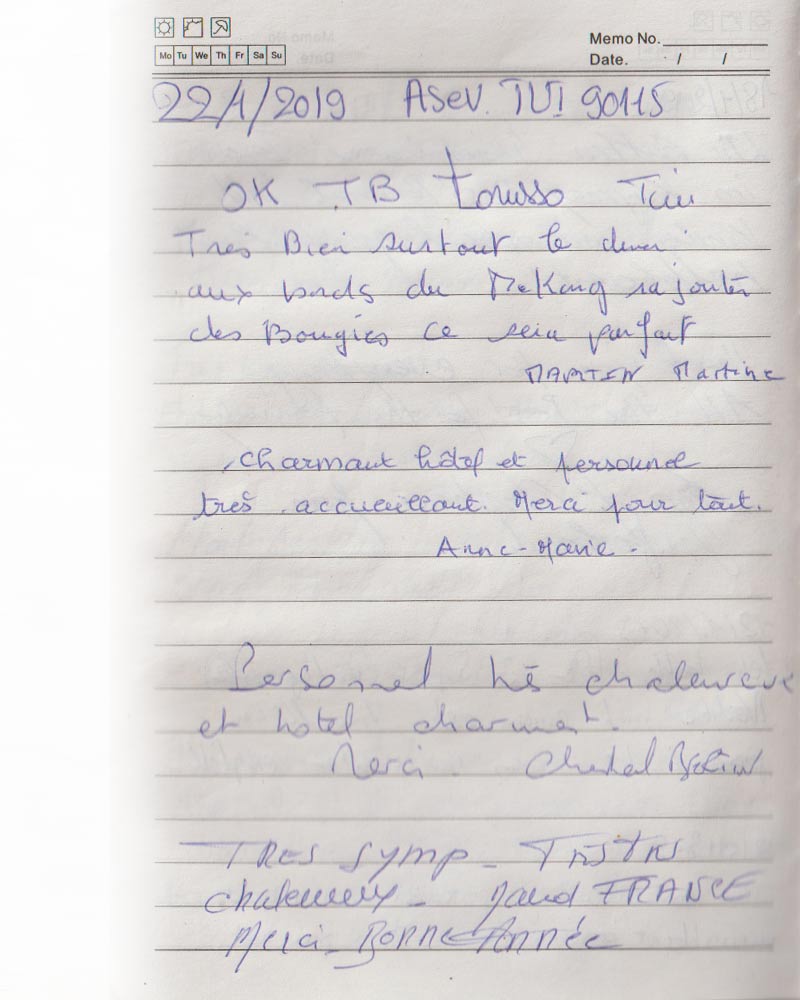 Mo Tu We Th Fr Sa Su
Memo No.
Date. / /
22/1/2019 ASEV. TUI 90115
OK TB
Très Bien surtout le diner
aux bords du MeKong rajouter
des Bougies ce sera parfait
MARTIN Martine
charmant hôtel et personnel
très accueillant. Merci pour tout.
Anne-Marie.
Personnel très chaleureux
et hotel charmant.
Merci. Chantal
TRES SYMP_
chaleureux_ FRANCE
Merci_ BONNE Année